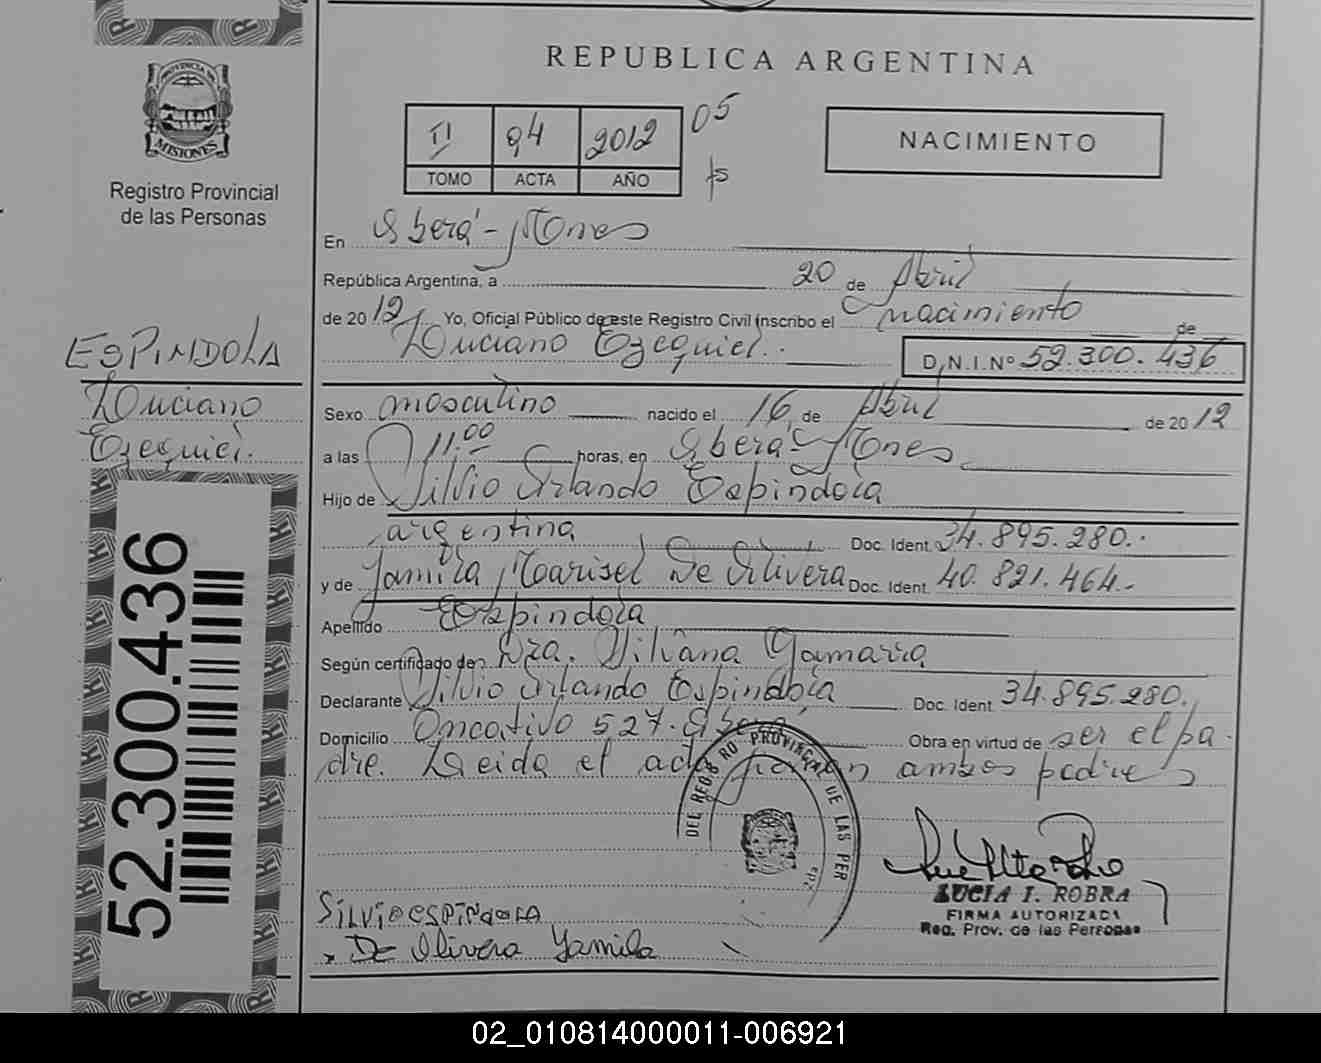 PROVINCIA DE
MISIONES
Registro Provincial
de las Personas
ESPINDOLA
Luciano
Ezequiel.
52.300.436
REPUBLICA ARGENTINA
II 94 2012 05
TOMO ACTA AÑO fs
NACIMIENTO
En Oberá - Mones
República Argentina, a 20 de Abril
de 2012 Yo, Oficial Público de este Registro Civil inscribo el nacimiento de
Luciano Ezequiel. D.N.I. Nº 52.300.436
Sexo masculino nacido el 16 de Abril de 2012
a las 11.00 horas, en Oberá - Mones
Hijo de Silvio Orlando Espindola
argentina Doc. Ident. 34.895.280.
y de Yamila Marisel De Olivera Doc. Ident. 40.821.464.-
Apellido Espindola
Según certificado de Dra. Viliana Gamarra
Declarante Silvio Orlando Espindola Doc. Ident. 34.895.280.
Domicilio Oncativo 527. Oberá Obra en virtud de ser el pa
dre. Leida el acta firman ambos padres
DEL REGISTRO PROVINCIAL DE LAS PER
SILVIO ESPINDOLA
De Olivera Yamila
LUCIA I. ROBRA
FIRMA AUTORIZADA
Reg. Prov. de las Personas
02_010814000011-006921